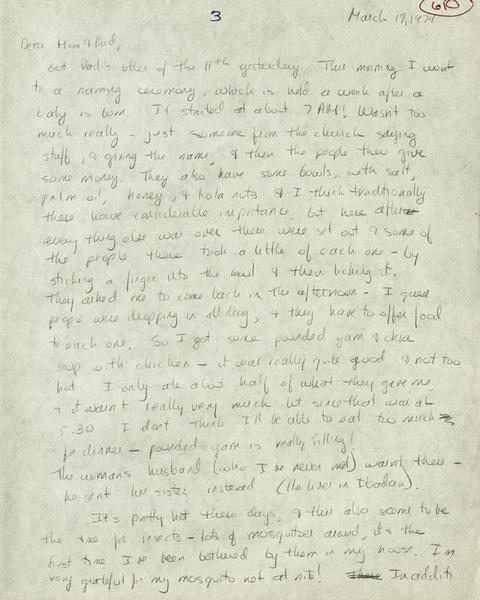 3
March 19, 1974
610
Dear Mom & Dad,
Got Dad's letter of the 11th yesterday. This morning I went
to a naming ceremony, which is held a week after a
baby is born. It started at about 7 AM! Wasn't too
much really – just someone from the church saying
stuff, & giving the name, & then the people there give
some money. They also have some bowls, with salt,
palm oil, honey, & kola nuts & I think traditionally
these have considerable importance, but here after
everything else was over these were set out & some of
the people there took a little of each one – by
sticking a finger into the bowl & then licking it.
They asked me to come back in the afternoon – I guess
people were dropping in all day, & they have to offer food
to each one. So I got some pounded yam & okra
soup with chicken – it was really quite good & not too
hot. I only ate about half of what they gave me,
& it wasn't really very much but since that was at
5:30 I don't think I'll be able to eat too much
for dinner – pounded yam is really filling!
The woman's husband (who I've never met) wasn't there –
he sent his sister instead (he lives in Ibadan).
It's pretty hot these days, & this also seems to be
the time for insects – lots of mosquitoes around, it's the
first time I've been bothered by them in my house. I'm
very grateful for my mosquito net at nite! In additi